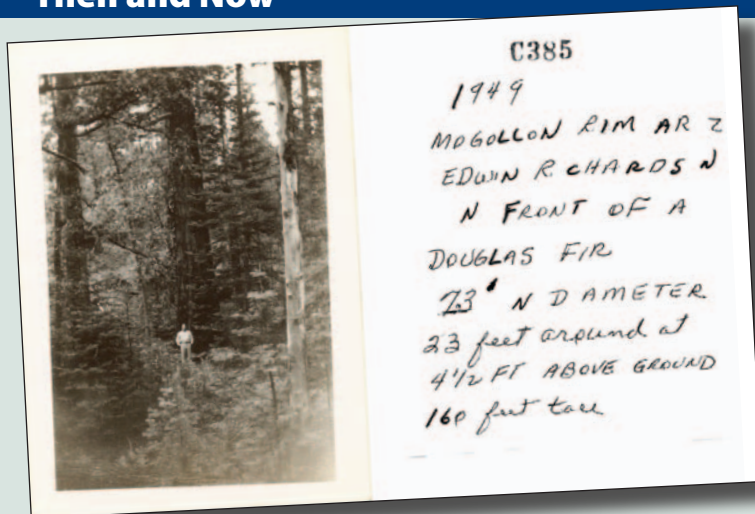 Then and Now
C385
1949
MOGOLLON RIM ARZ
EDWIN RCHARDSN
N FRONT OF A
DOUGLAS FIR
23' N DAMETER
23 feet around at
4 1/2 FT ABOVE GROUND
160 feet tall